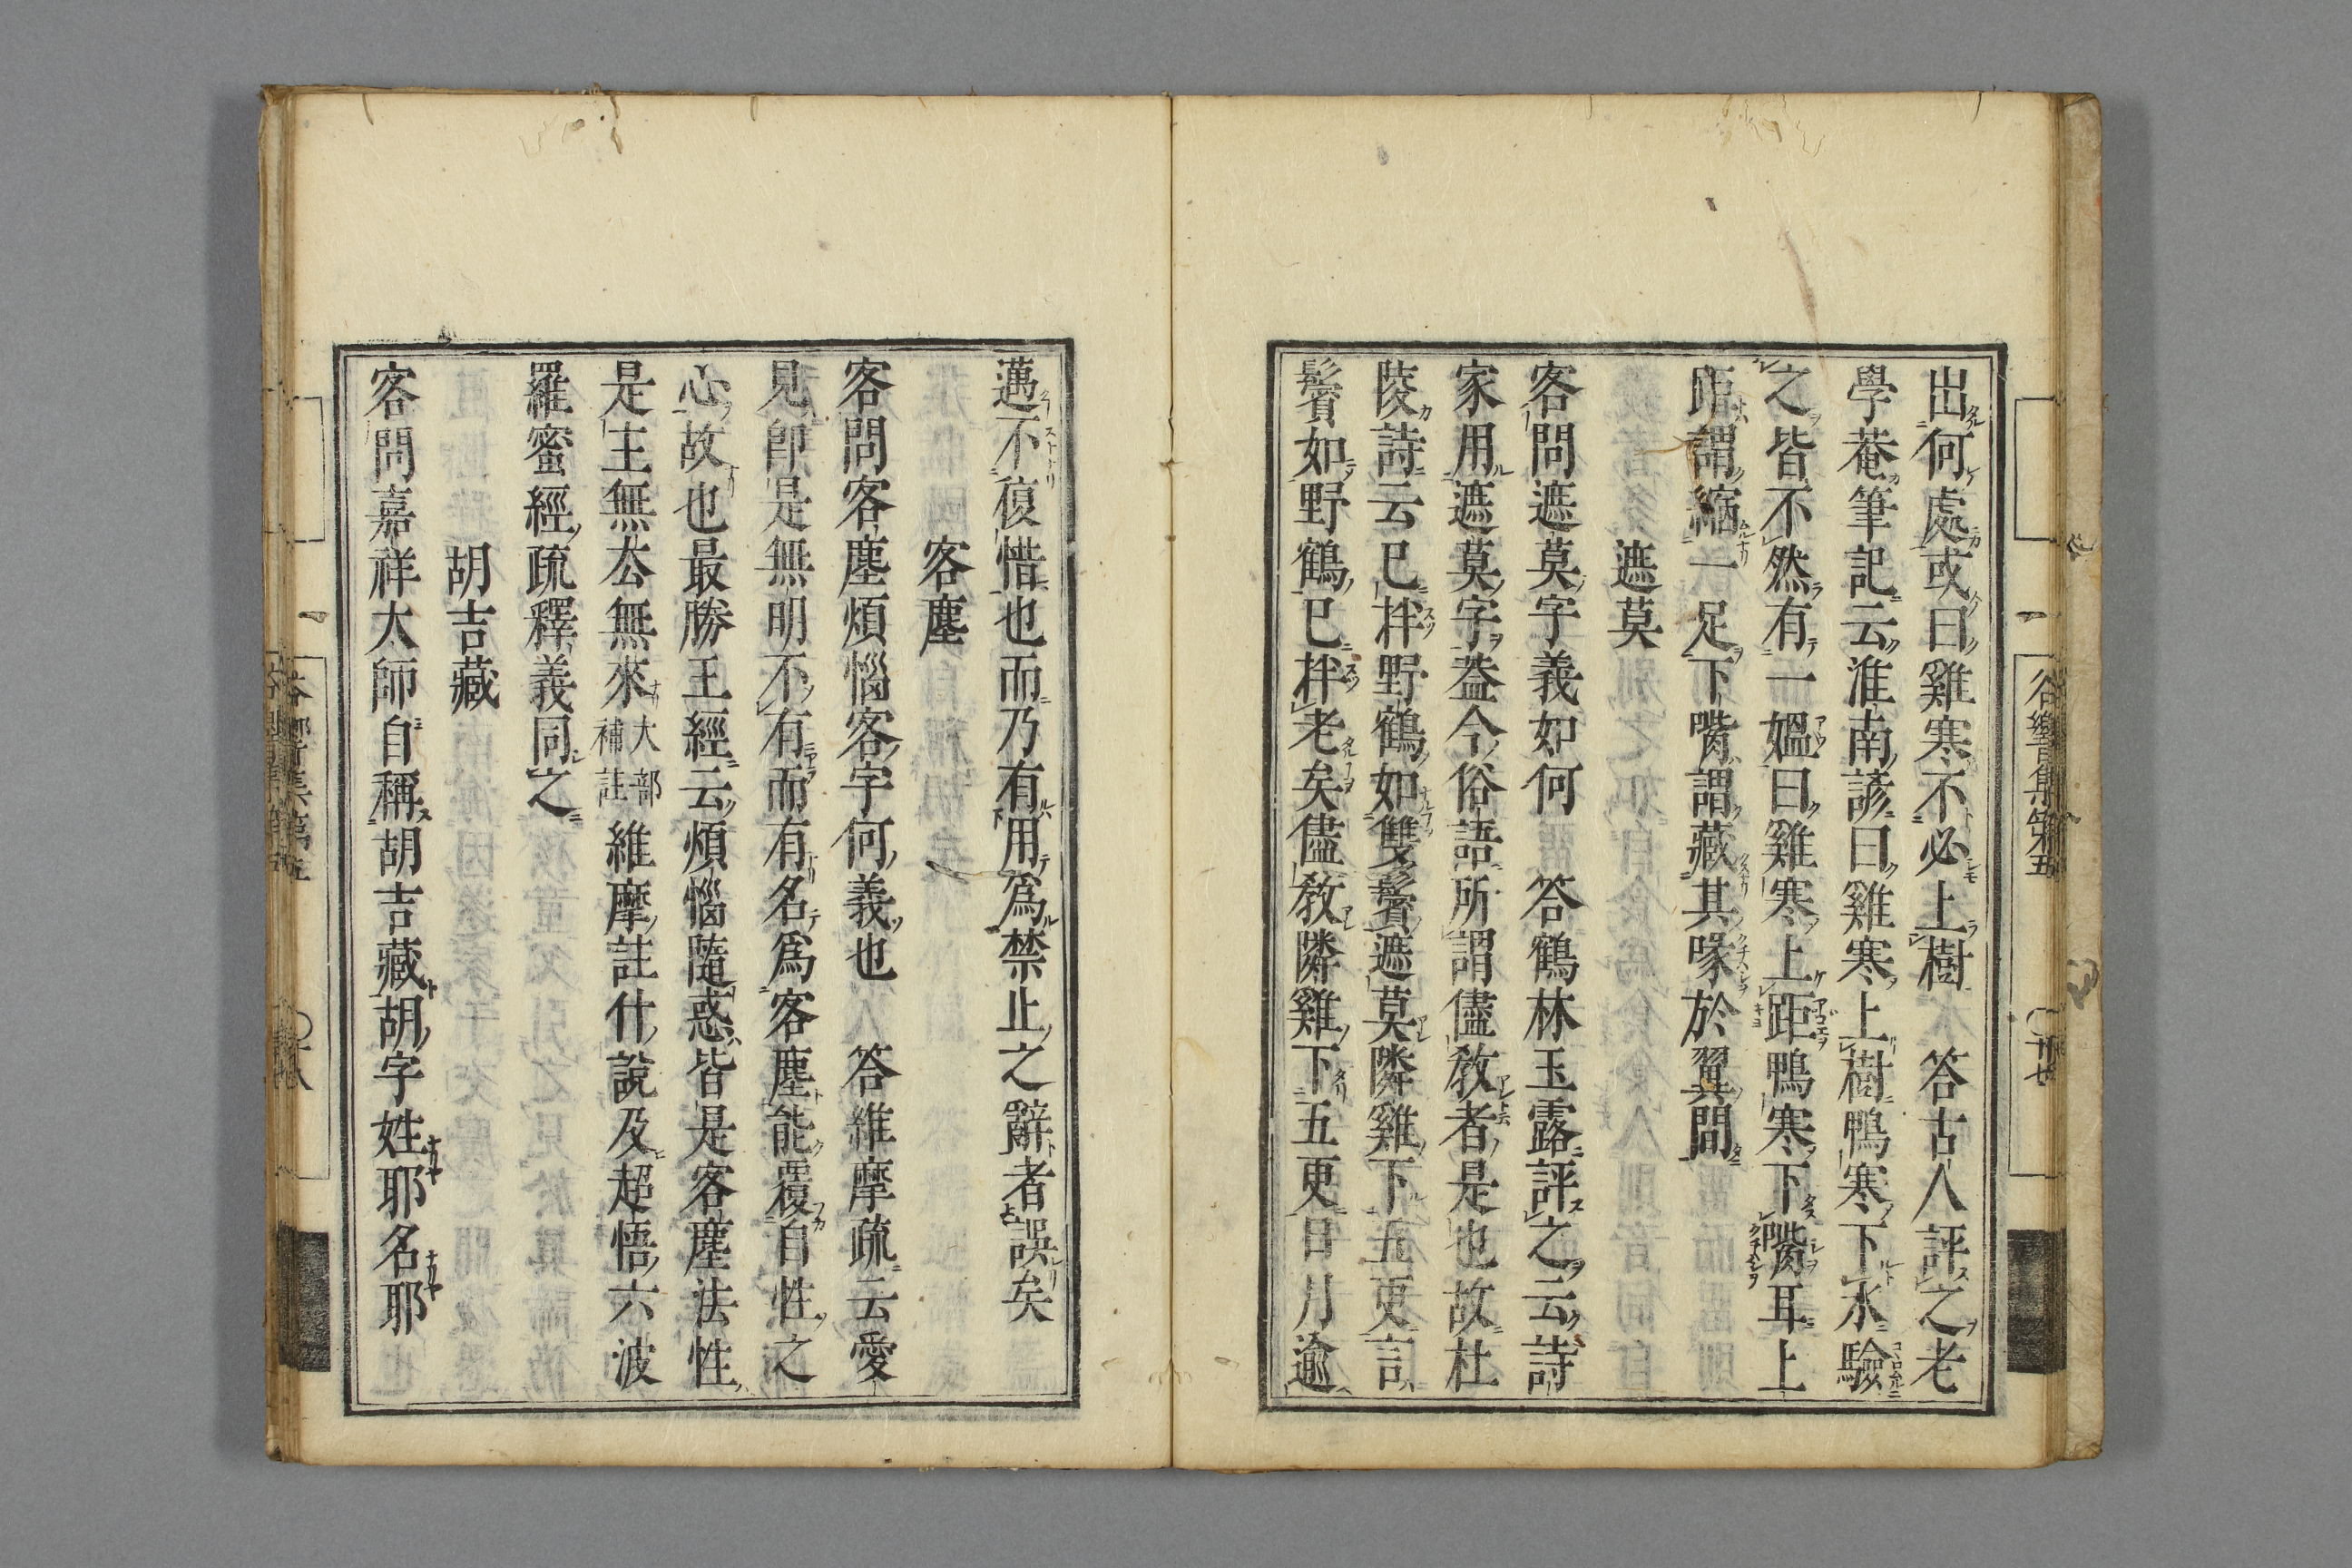 出何處或曰雞寒不必上樹　答古人評之老
學菴筆記云淮南諺曰雞寒上樹鴨寒下水驗
之皆不然有一媼曰雞寒上距鴨寒下嘴耳上
距謂縮一足下嘴謂藏其喙於翼間
遮莫
客問遮莫字義如何　答鶴林玉露評之云詩
家用遮莫字蓋今俗語所謂儘教者是也故杜
陵詩云已拌野鶴如雙鬢遮莫隣雞下五更言
鬢如野鶴已拌老矣儘教隣雞下五更日月逾
邁不復惜也而乃有用為禁止之辭者誤矣
客塵
客問客塵煩惱客字何義也　答維摩疏云愛
見卽是無明不有而有名為客塵能覆自性之
心故也最勝王經云煩惱隨惑皆是客塵法性
是主無去無來大部補註維摩註什說及超悟六波
羅蜜經疏釋義同之
胡吉藏
客問嘉祥大師自稱胡吉藏胡字姓耶名耶